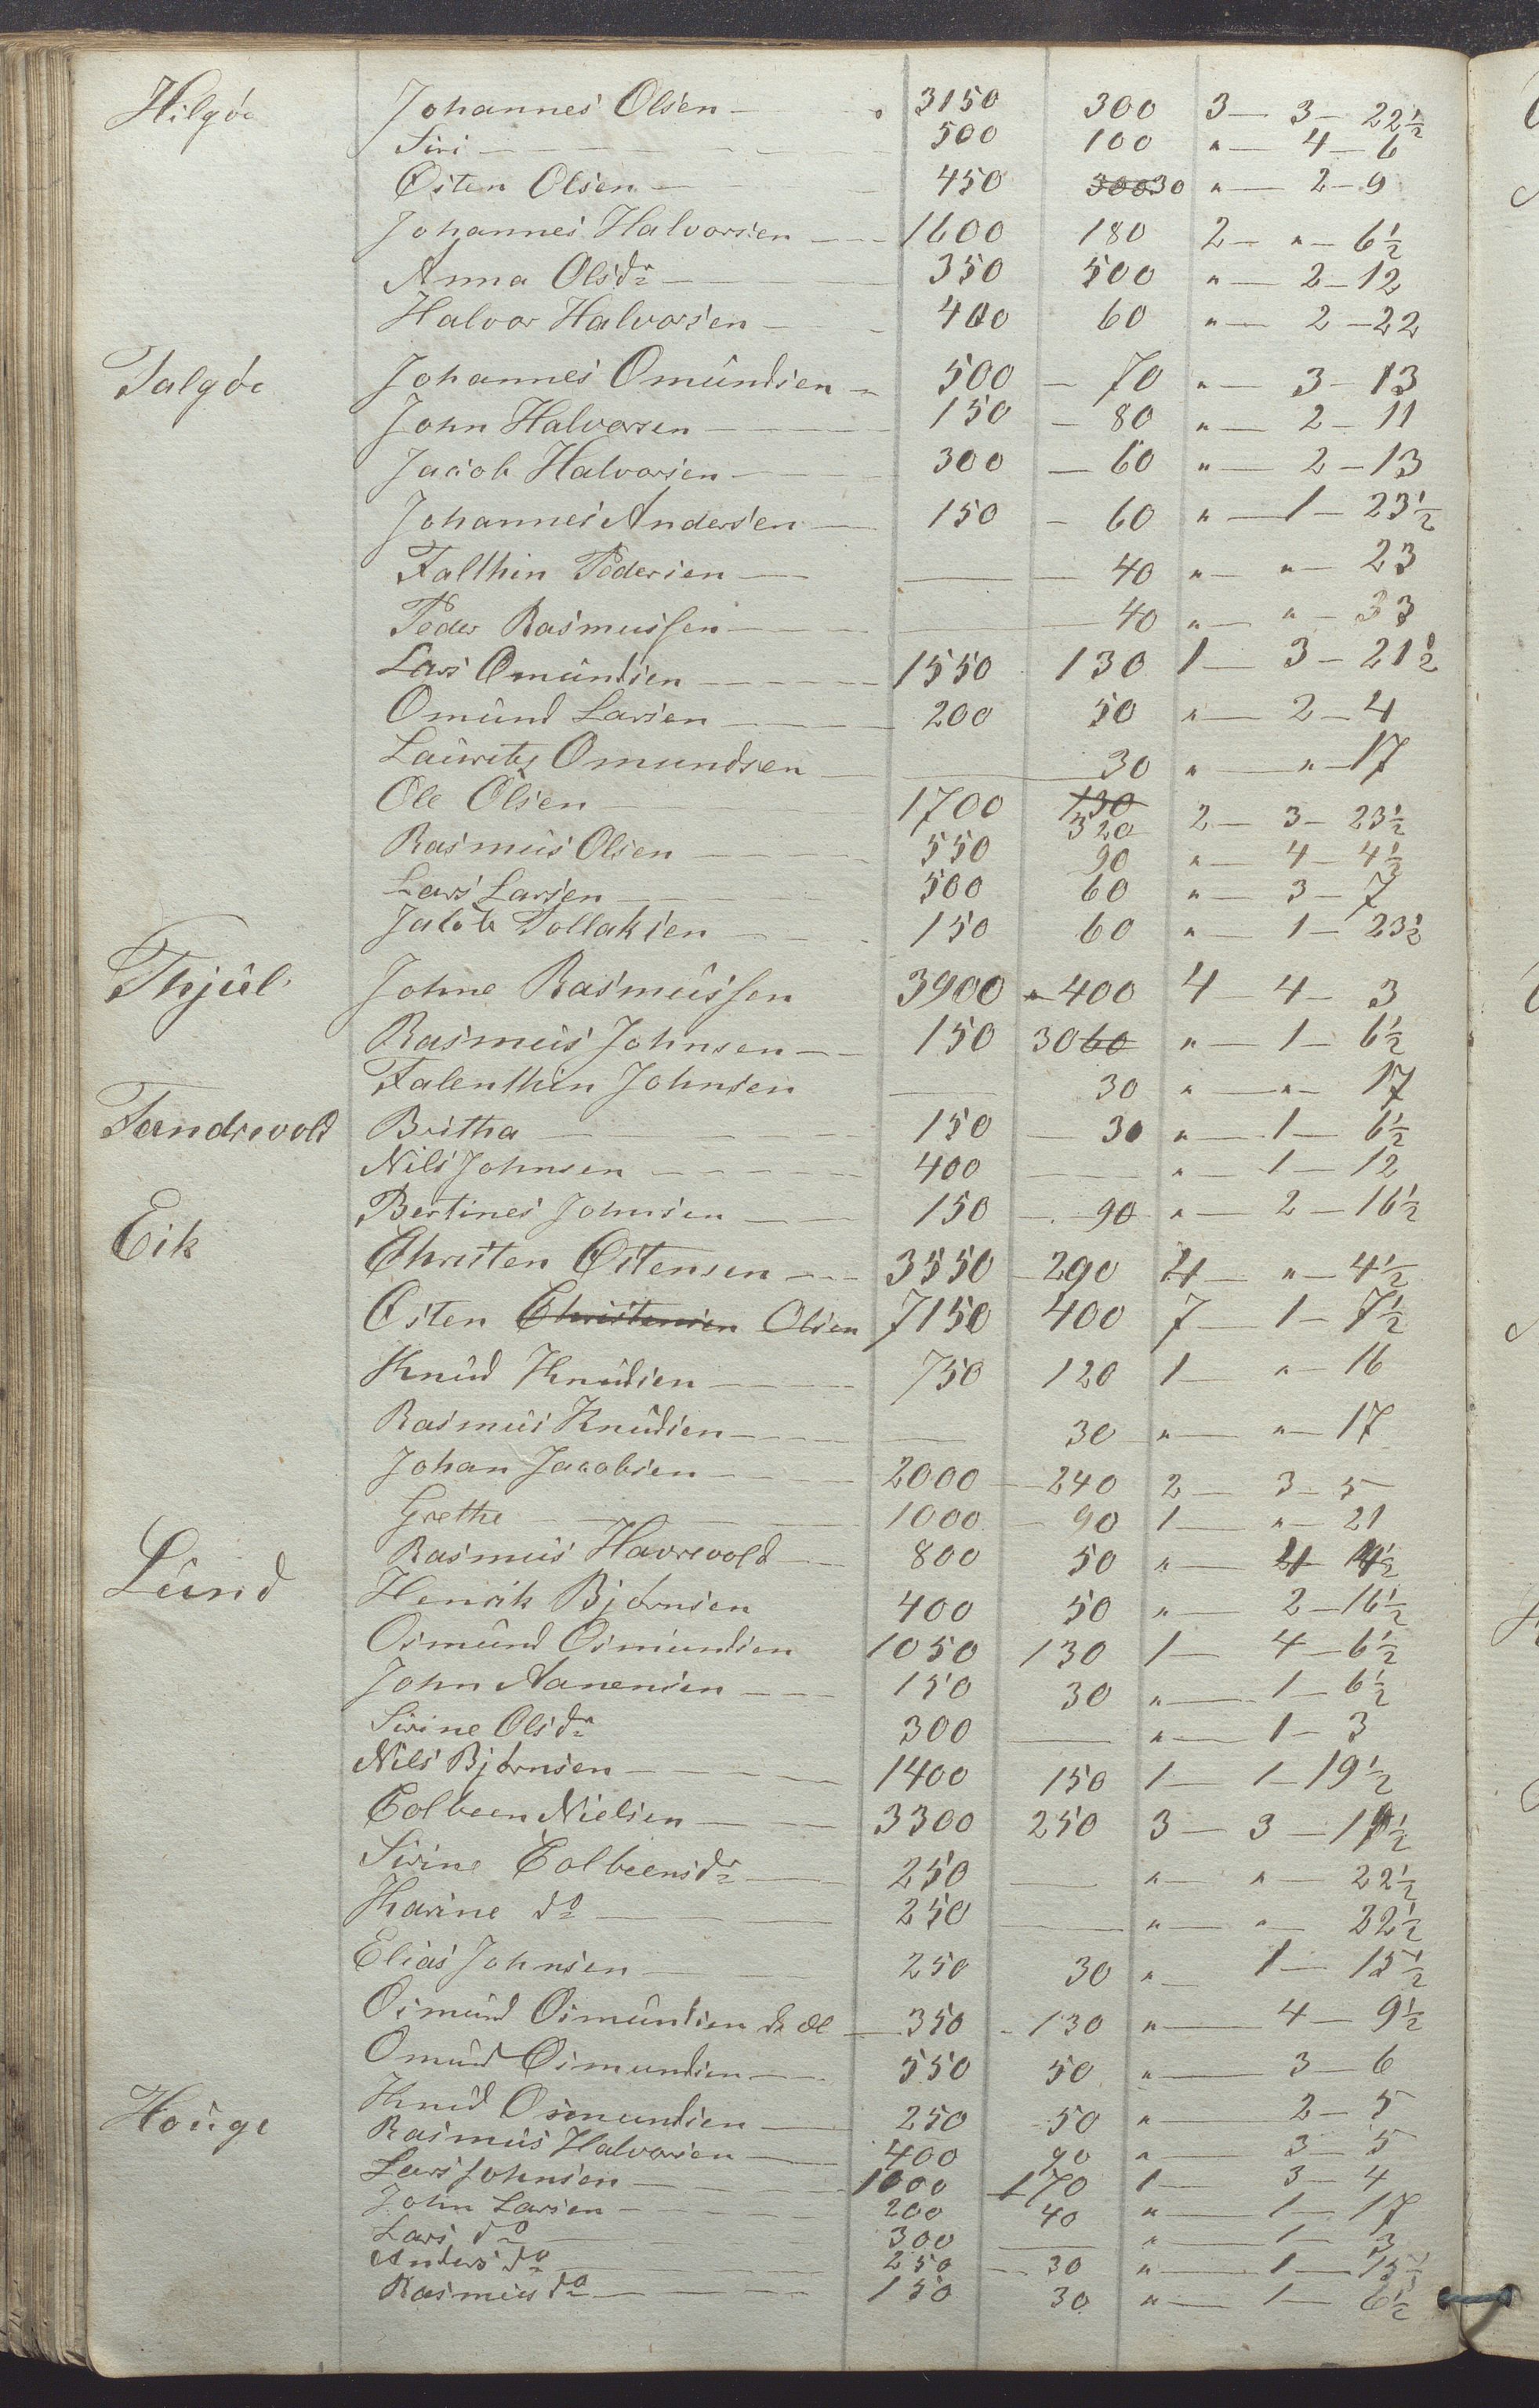 Hilgøe Johannes Olsen 3150 300 3 — 3 — 22½
Siri 500 100 " — 4 — 6
Østen Olsen 450 30030 " — 2 — 9
Johannes Halvorsen 1600 180 2 — " — 6½
Anna Olsdr 350 500 " — 2 — 12
Halvor Halvorsen 400 60 " — 2 — 22
Talgøe Johannes Omündsen 500 — 70 " — 3 — 13
John Halvorsen 150 — 80 " — 2 — 11
Jacob Halvorsen 300 — 60 " — 2 — 13
Johannes Andersen 150 — 60 " — 1 — 23½
Falthin Pedersen — 40 " — " — 23
Peder Rasmussen — 40 " — " — 33
Lars Omündsen 1550 130 1 — 3 — 21½
Omünd Larsen 200 50 " — 2 — 4
Laüritz Omundsen — 30 " — " — 17
Ole Olsen 1700 130 320 2 — 3 — 23½
Rasmüs Olsen 550 90 " — 4 — 4½
Lars Larsen 500 60 " — 3 — 7
Jacob Tollaksen 150 60 " — 1 — 23½
Thjül Johne Rasmüssen 3900 " 400 4 — 4 — 3
Rasmüs Johnsen 150 3060 " — 1 — 6½
Falenthin Johnsen — 30 " — " — 17
Tandrevold Britha 150 — 30 " — 1 — 6½
Nils Johnsen 400 — " — 1 — 12
Bertines Johnsen 150 — 90 " — 2 — 16½
Eik Christen Østensen 3550 290 4 — " — 4½
Østen Christensen Olsen 7150 400 7 — 1 — 7½
Knüd Knüdsen 750 120 1 — " — 16
Rasmüs Knüdsen — 30 " — " — 17
Johan Jacobsen 2000 — 240 2 — 3 — 5
Grethe 1000 — 90 1 — " — 21
Rasmüs Havrevold 800 50 " — 4 — 4½
Lünd Henrik Bjørnsen 400 50 " — 2 — 16½
Osmünd Osmundsen 1050 130 1 — 4 — 6½
John Aanensen 150 30 " — 1 — 6½
Sirine Olsdr 300 — " — 1 — 3
Nils Bjørnsen 1400 150 1 — 1 — 19½
Colbeen Nielsen 3300 250 3 — 3 — 19½
Sirine Colbeensdr 250 — " — " — 22½
Karine do 250 — " — " — 22½
Elias Johnsen 250 30 " — 1 — 15½
Osmünd Osmündsen d. Æ 350 — 130 " — 4 — 9½
Omünd Osmundsen 550 50 " — 3 — 6
Knüd Osmundsen 250 50 " — 2 — 5
Hoüge Rasmüs Halvorsen 400 90 " — 3 — 5
Lars Johnsen 1000 170 1 — 3 — 4
John Larsen 200 40 " — 1 — 17
Lars do 300 — " — 1 — 3
Anders do 250 — 30 " — 1 — 15½
Rasmüs do 150 30 " — 1 — 6½